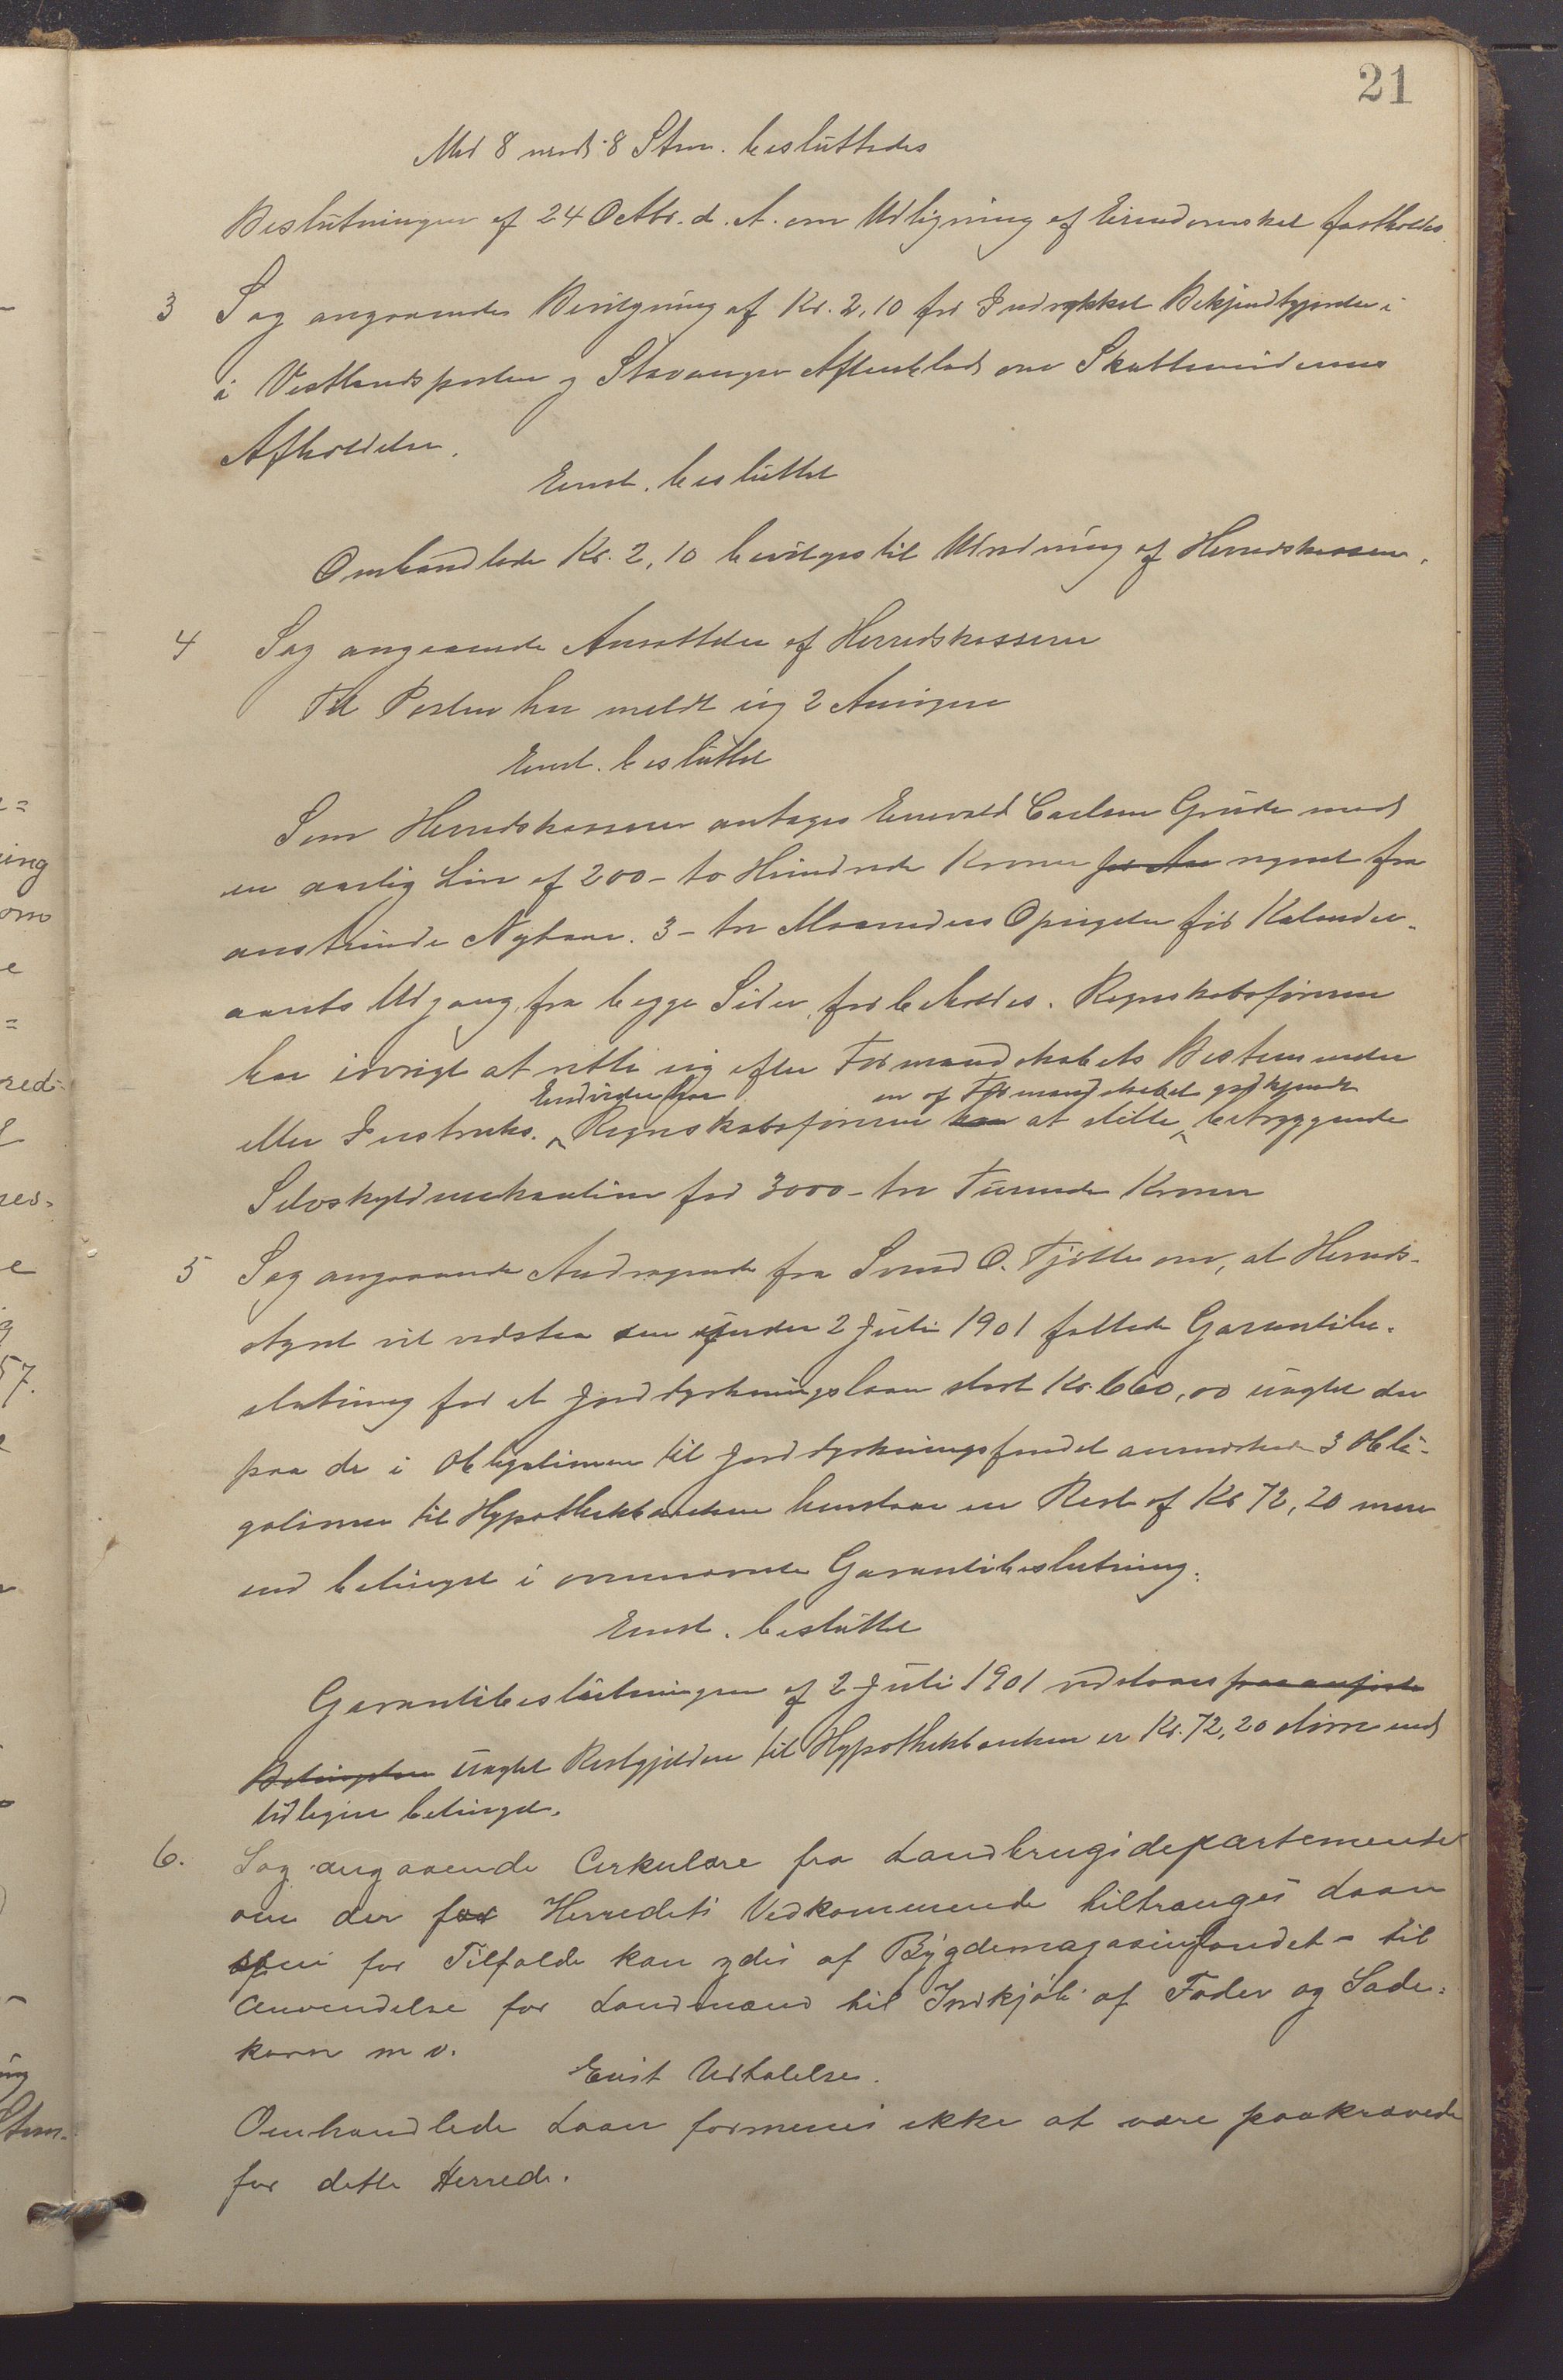 21
Med 8 mod 8 Stem. besluttedes
Beslutningen af 24 Octbr. d. A. om Udligning af Eiendomskat fastholdes
3 Sag angaaende Bevilgning af Kr. 2,10 for Indrykket Bekjendtgjørelse i
i Vestlandsposten og Stavanger Aftenblad om Skattemødernes
Afholdelse.
Enst. besluttet
Omhandlede Kr. 2,10 bevilges til Udredning af Herredskassen.
4 Sag angaaende Ansættelse af Herredskasserer
Til Posten har meldt sig 2 Ansøgere
Enst. besluttet
Som Herredskasserer antages Enevald Carlsen Grude mod
en aarlig Løn af 200 - to Hundrede Kroner for Aar regnet fra
anstundende Nytaar. 3 - tre Maaneders Opsigelse før Kalender-
aarets Udgang fra begge Sider forbeholdes. Regnskabsføreren
har iøvrigt at rette sig efter Formandskabets Bestemmelser
Endvidere har en af Formandskabet godkjendt
eller Instruks. Regnskabsføreren har at stille betryggende
Selvskyldnerkaution for 3000 - tre Tusinde Kroner
5 Sag angaaende Andragende fra Svend O. Tjøtta om, at Herreds-
styret vil vedstaa den under 2 Juli 1901 fattede Garantibe-
slutning for et Jorddyrkningslaan stort Kr. 660,00 uagtet der
paa de i Obligationen til Jorddyrkningsfondet anmærkede 3 Obli-
gationer til Hypothekbanken henstaar en Rest af Kr 72,20 mere
end betinget i omnævnte Garantibeslutning.
Enst. besluttet
Garantibeslutningen af 2 Juli 1901 vedstaaes paa anførte
Betingelser uagtet Restgjælden til Hypothekbanken er Kr. 72,20 større end
tidligere betinget.
6. Sag angaaende Cirkulære fra Landbrugsdepartementet
om der for Herredets Vedkommende tiltrænges Laan
som for Tilfælde kan ydes af Bygdemagasinfondet - til
Anvendelse for Landmænd til Indkjøb af Foder og Sæde-
korn m v.
Enst Udtalelse.
Omhandlede Laan formenes ikke at være paakrævede
for dette Herrede.